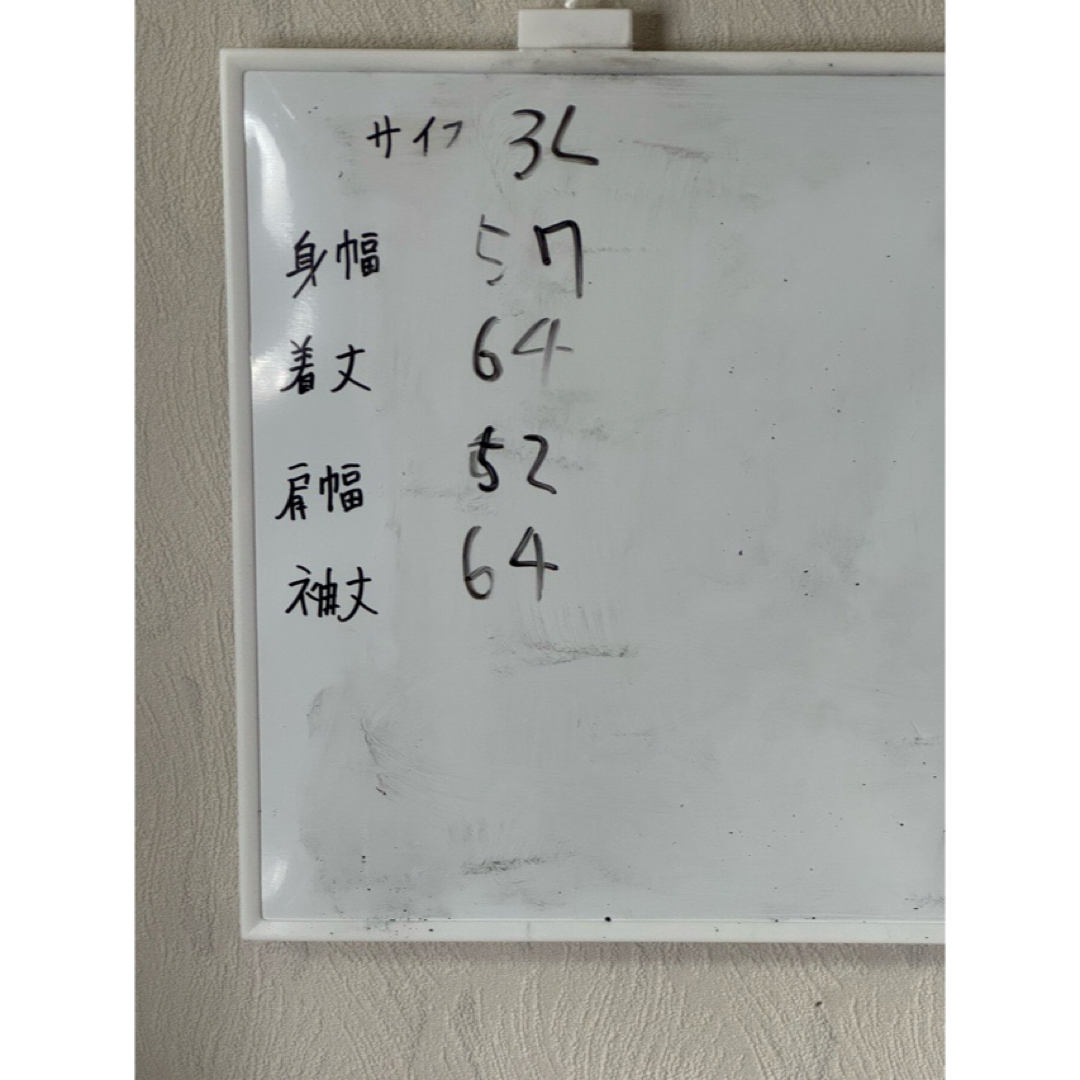 サイフ 3L
身幅 57
着丈 64
肩幅 52
袖丈 64